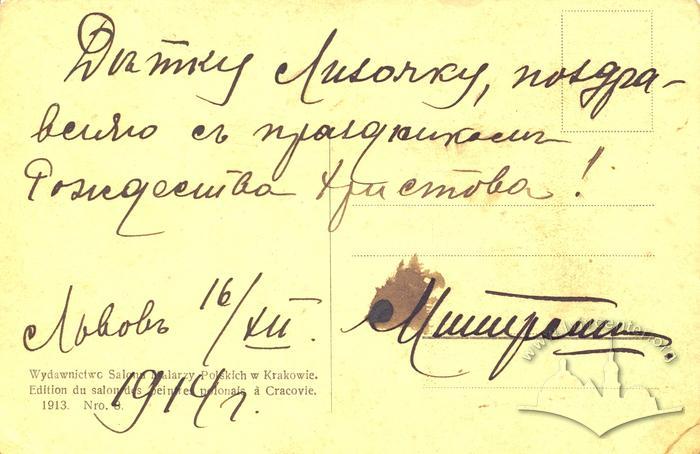 Дѣтку Лизочку, поздра-
вляю съ праздникомъ
Рождества Христова!
Львовъ 16/XII.
1914 г.
Wydawnictwo Salonu Malarzy Polskich w Krakowie.
Edition du salon des peintres polonais à Cracovie.
1913. Nro.